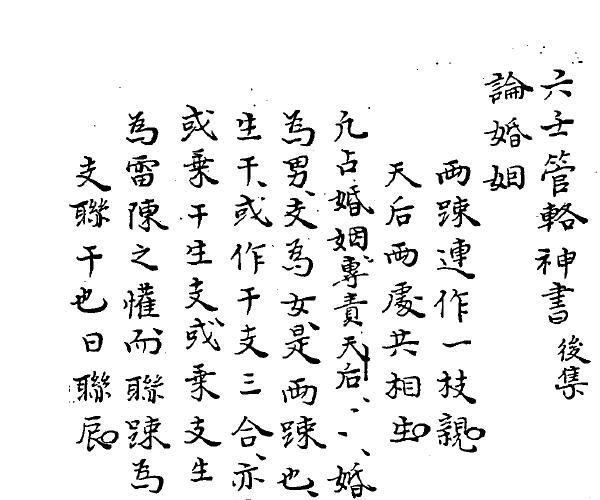 六壬管輅神書 後集
論婚姻
両踈連作一枝親
天后両處共相生
凢占婚姻專責天后、一、婚
為男、支為女、是両踈也、
生干、或作干支三合、亦
或乗干生支、或乗支生
為雷陳之懽而聯踈為
支聯干也日聯辰